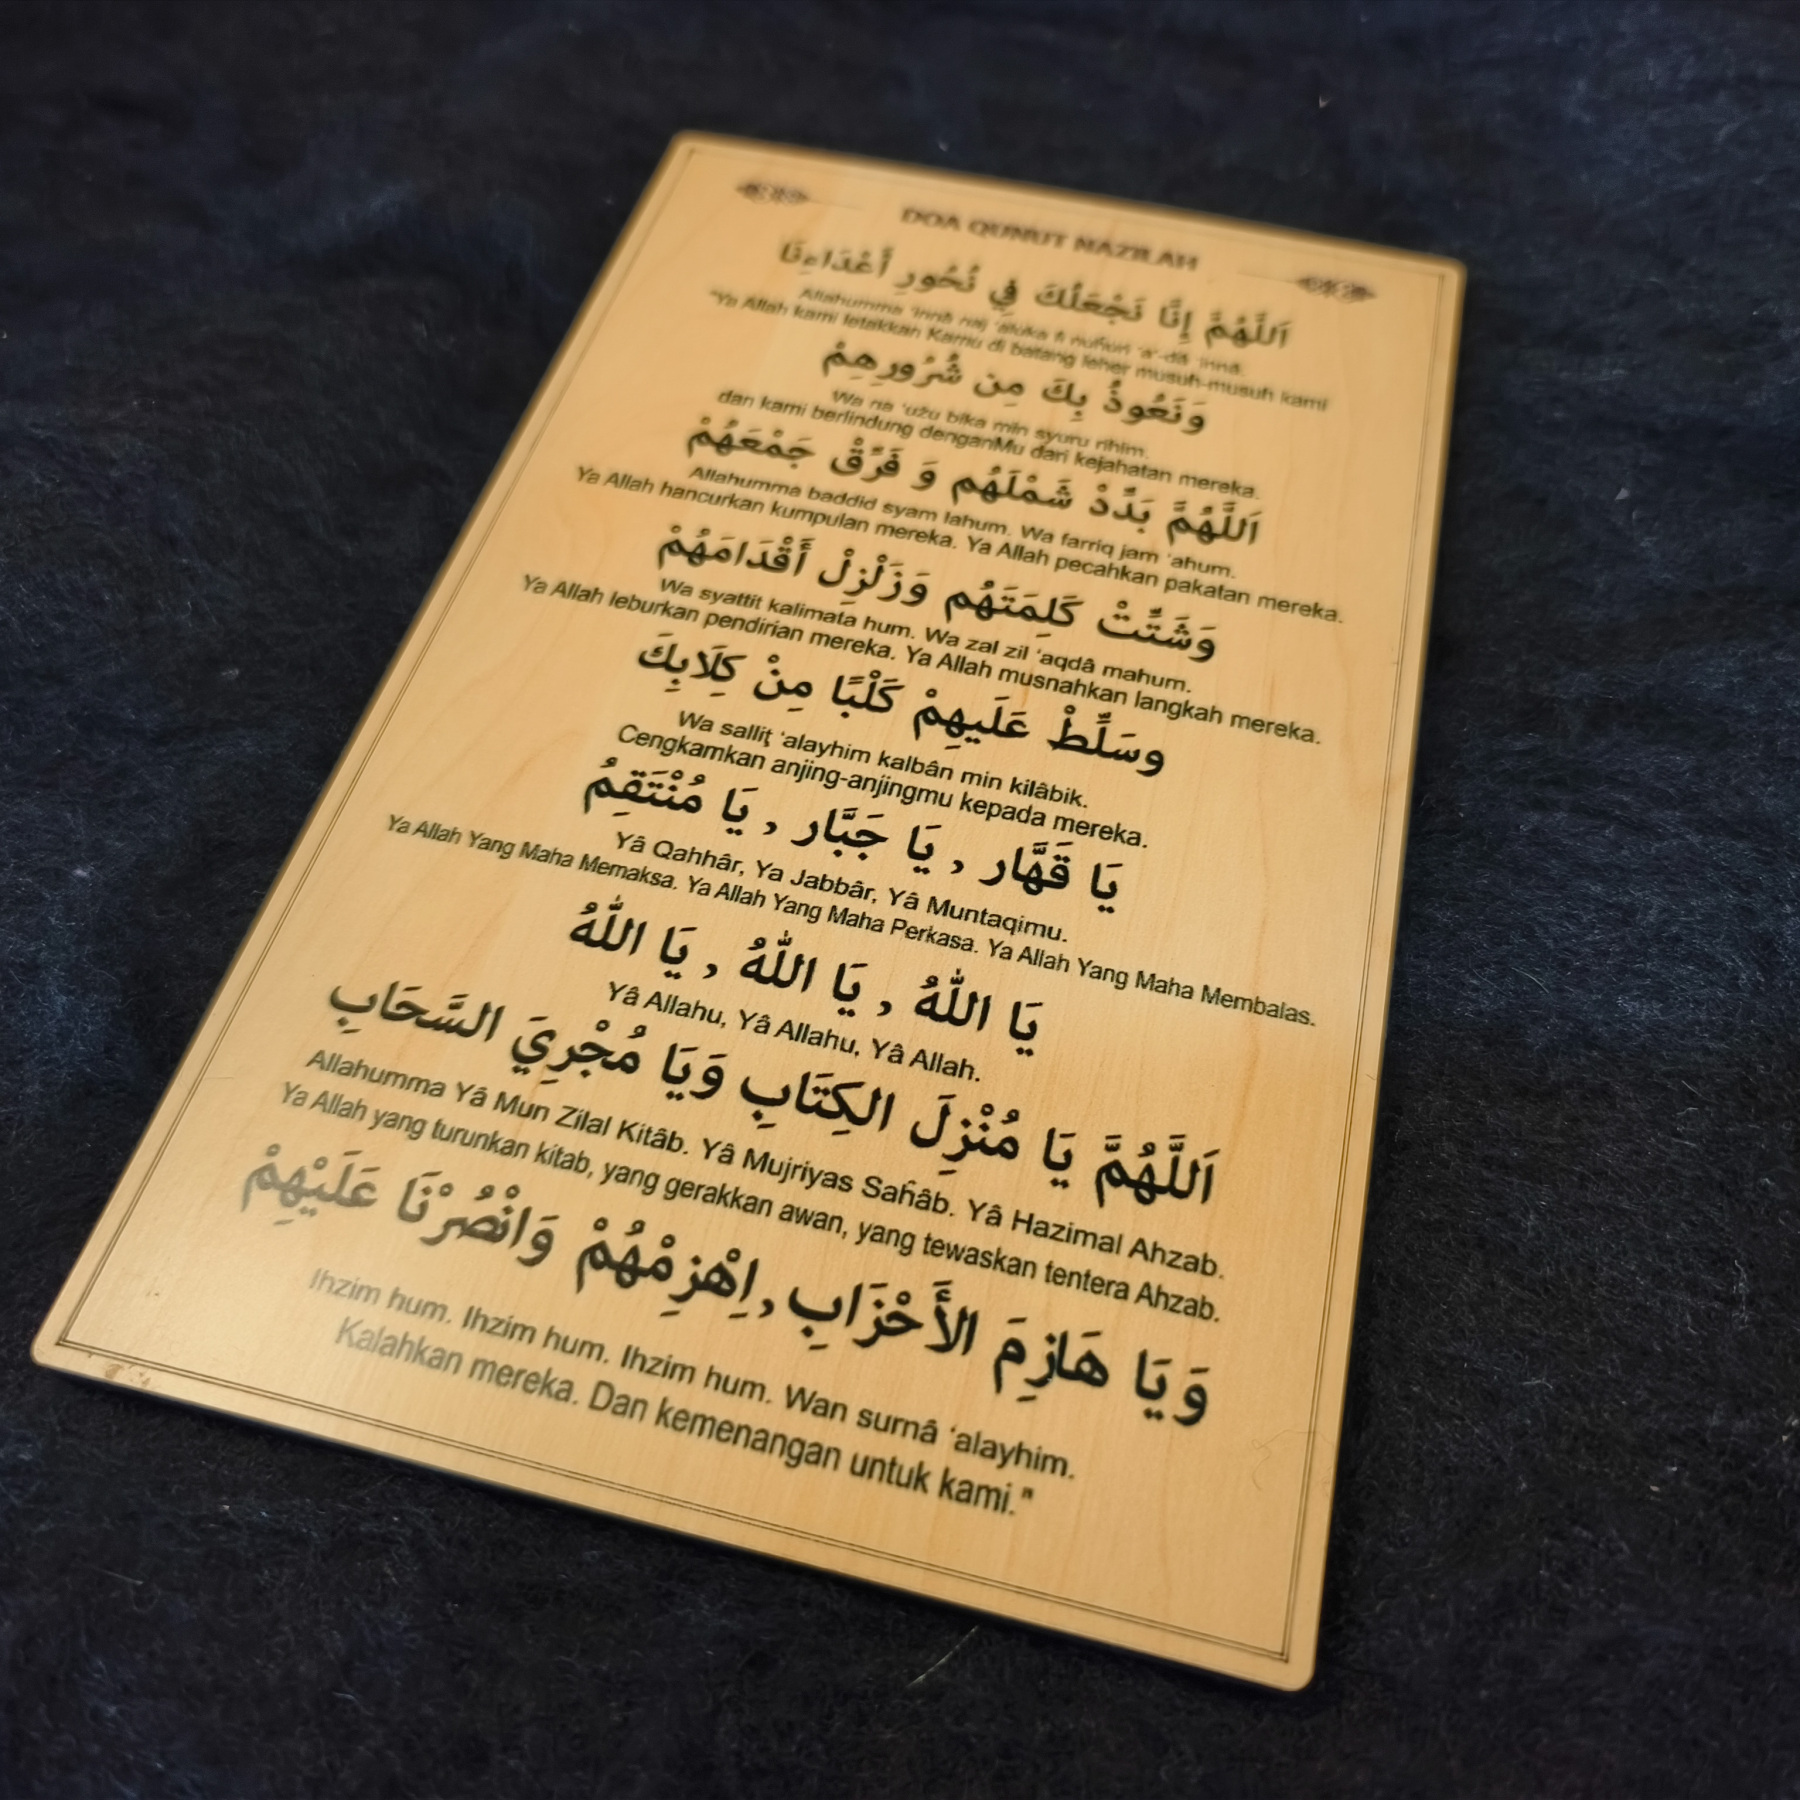 DOA QUNUT NAZILAH
اَللَّهُمَّ إِنَّا نَجْعَلُكَ فِي نُحُورِ أَعْدَاءِنَا
Allahumma 'innâ naj 'aluka fi nuĥuri 'a'-dâ 'innâ.
"Ya Allah kami letakkan Kamu di batang leher musuh-musuh kami
وَنَعُوذُ بِكَ مِن شُرُورِهِمْ
Wa na 'užu bika min syuru rihim.
dan kami berlindung denganMu dari kejahatan mereka.
اَللَّهُمَّ بَدِّدْ شَمْلَهُم وَ فَرِّقْ جَمْعَهُمْ
Allahumma baddid syam lahum. Wa farriq jam 'ahum.
Ya Allah hancurkan kumpulan mereka. Ya Allah pecahkan pakatan mereka.
وَشَتِّتْ كَلِمَتَهُم وَزَلْزِلْ أَقْدَامَهُمْ
Wa syattit kalimata hum. Wa zal zil 'aqdâ mahum.
Ya Allah leburkan pendirian mereka. Ya Allah musnahkan langkah mereka.
وسَلِّطْ عَلَيهِمْ كَلْبًا مِنْ كِلَابِكَ
Wa salliţ 'alayhim kalbân min kilâbik.
Cengkamkan anjing-anjingmu kepada mereka.
يَا قَهَّار , يَا جَبَّار , يَا مُنْتَقِمُ
Yâ Qahhâr, Ya Jabbâr, Yâ Muntaqimu.
Ya Allah Yang Maha Memaksa. Ya Allah Yang Maha Perkasa. Ya Allah Yang Maha Membalas.
يَا اللهُ , يَا اللهُ , يَا اللهُ
Yâ Allahu, Yâ Allahu, Yâ Allah.
اَللَّهُمَّ يَا مُنْزِلَ الكِتَابِ وَيَا مُجْرِيَ السَّحَابِ
Allahumma Yâ Mun Zilal Kitâb. Yâ Mujriyas Saĥâb. Yâ Hazimal Ahzab.
Ya Allah yang turunkan kitab, yang gerakkan awan, yang tewaskan tentera Ahzab.
وَيَا هَازِمَ الأَحْزَابِ , اِهْزِمْهُمْ وَانْصُرْنَا عَلَيْهِمْ
Ihzim hum. Ihzim hum. Ihzim hum. Wan surnâ 'alayhim.
Kalahkan mereka. Dan kemenangan untuk kami."